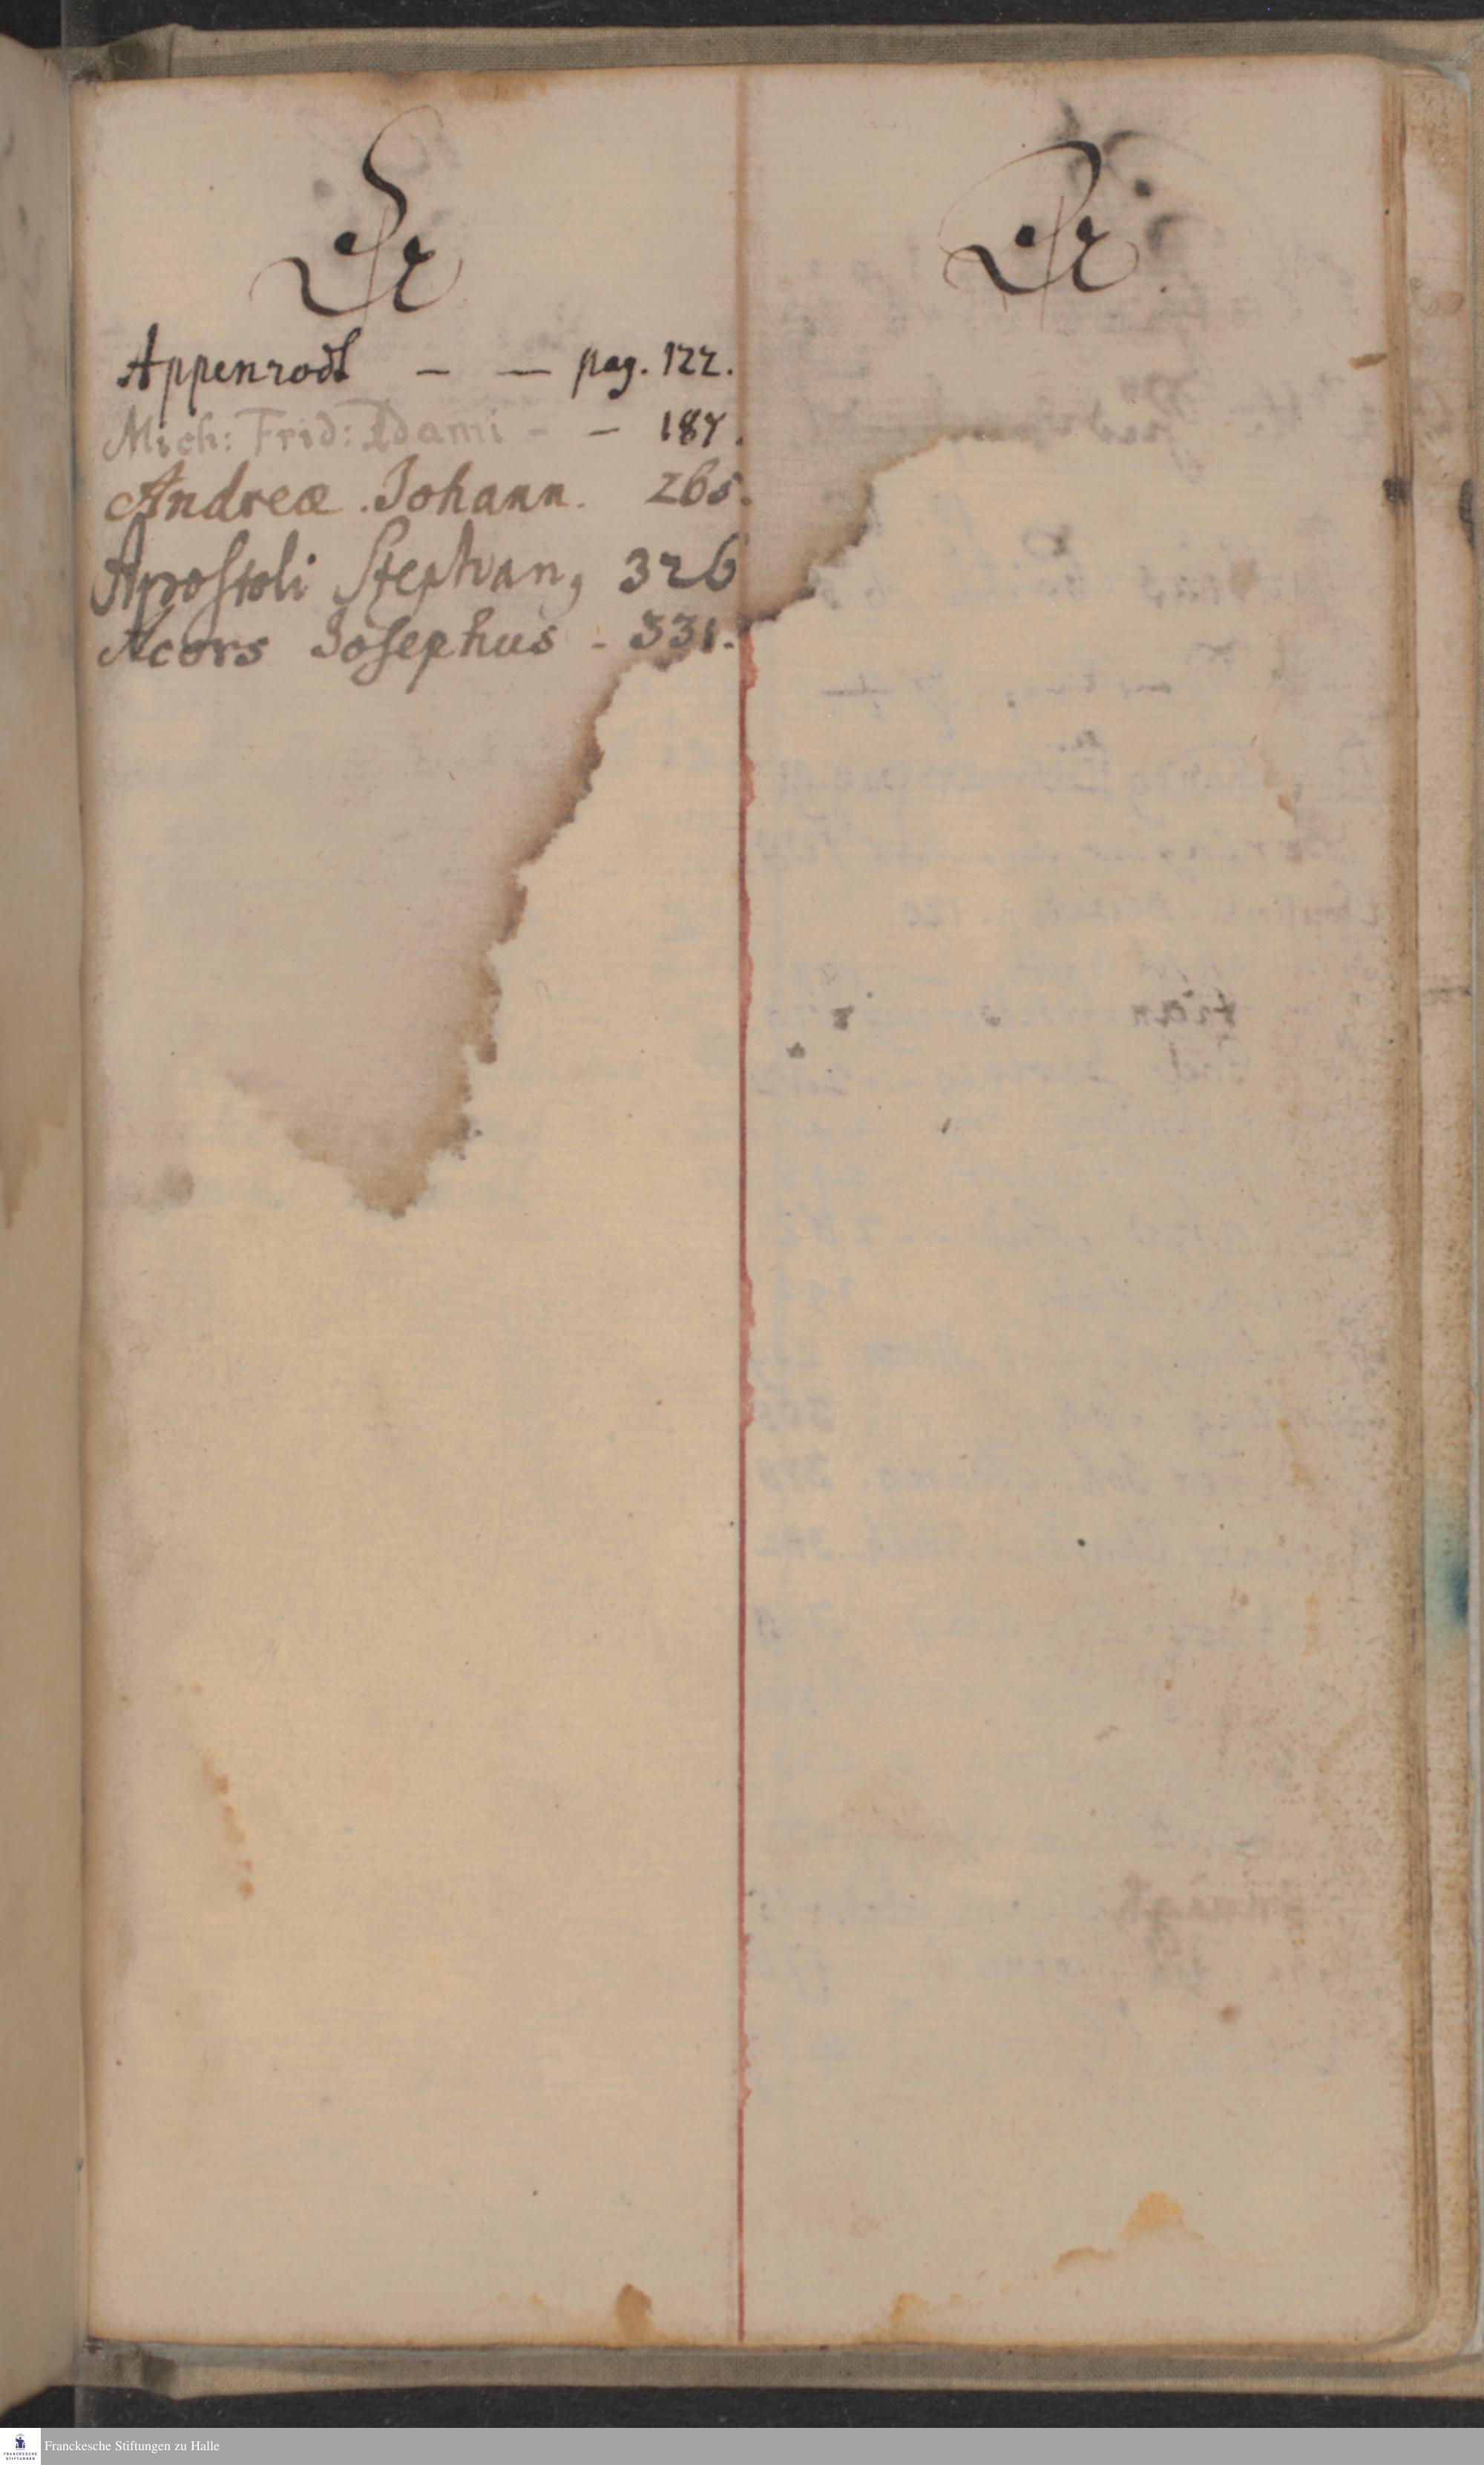 A
A
Appenrodt — — pag. 122.
Mich: Frid: Adami - - 187.
Andreæ Johann. 265.
Apostoli Stephan, 326
Acors Josephus - 331.
FRANCKESCHE
STIFTUNGEN
Franckesche Stiftungen zu Halle